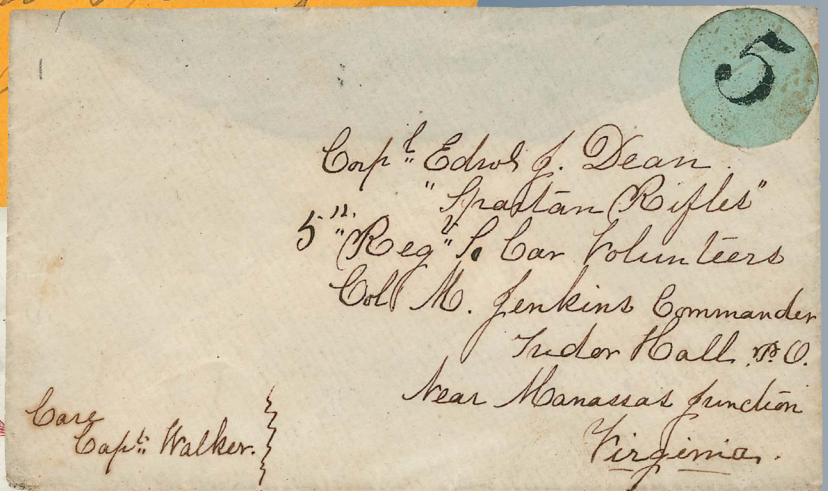 5
Corpl Edwd J. Dean
"Spartan Rifles"
5th Regt So Car Volunteers
Col M. Jenkins Commander
Tudor Hall P.O.
Near Manassas Junction
Virginia.
Care
Capt. Walker.